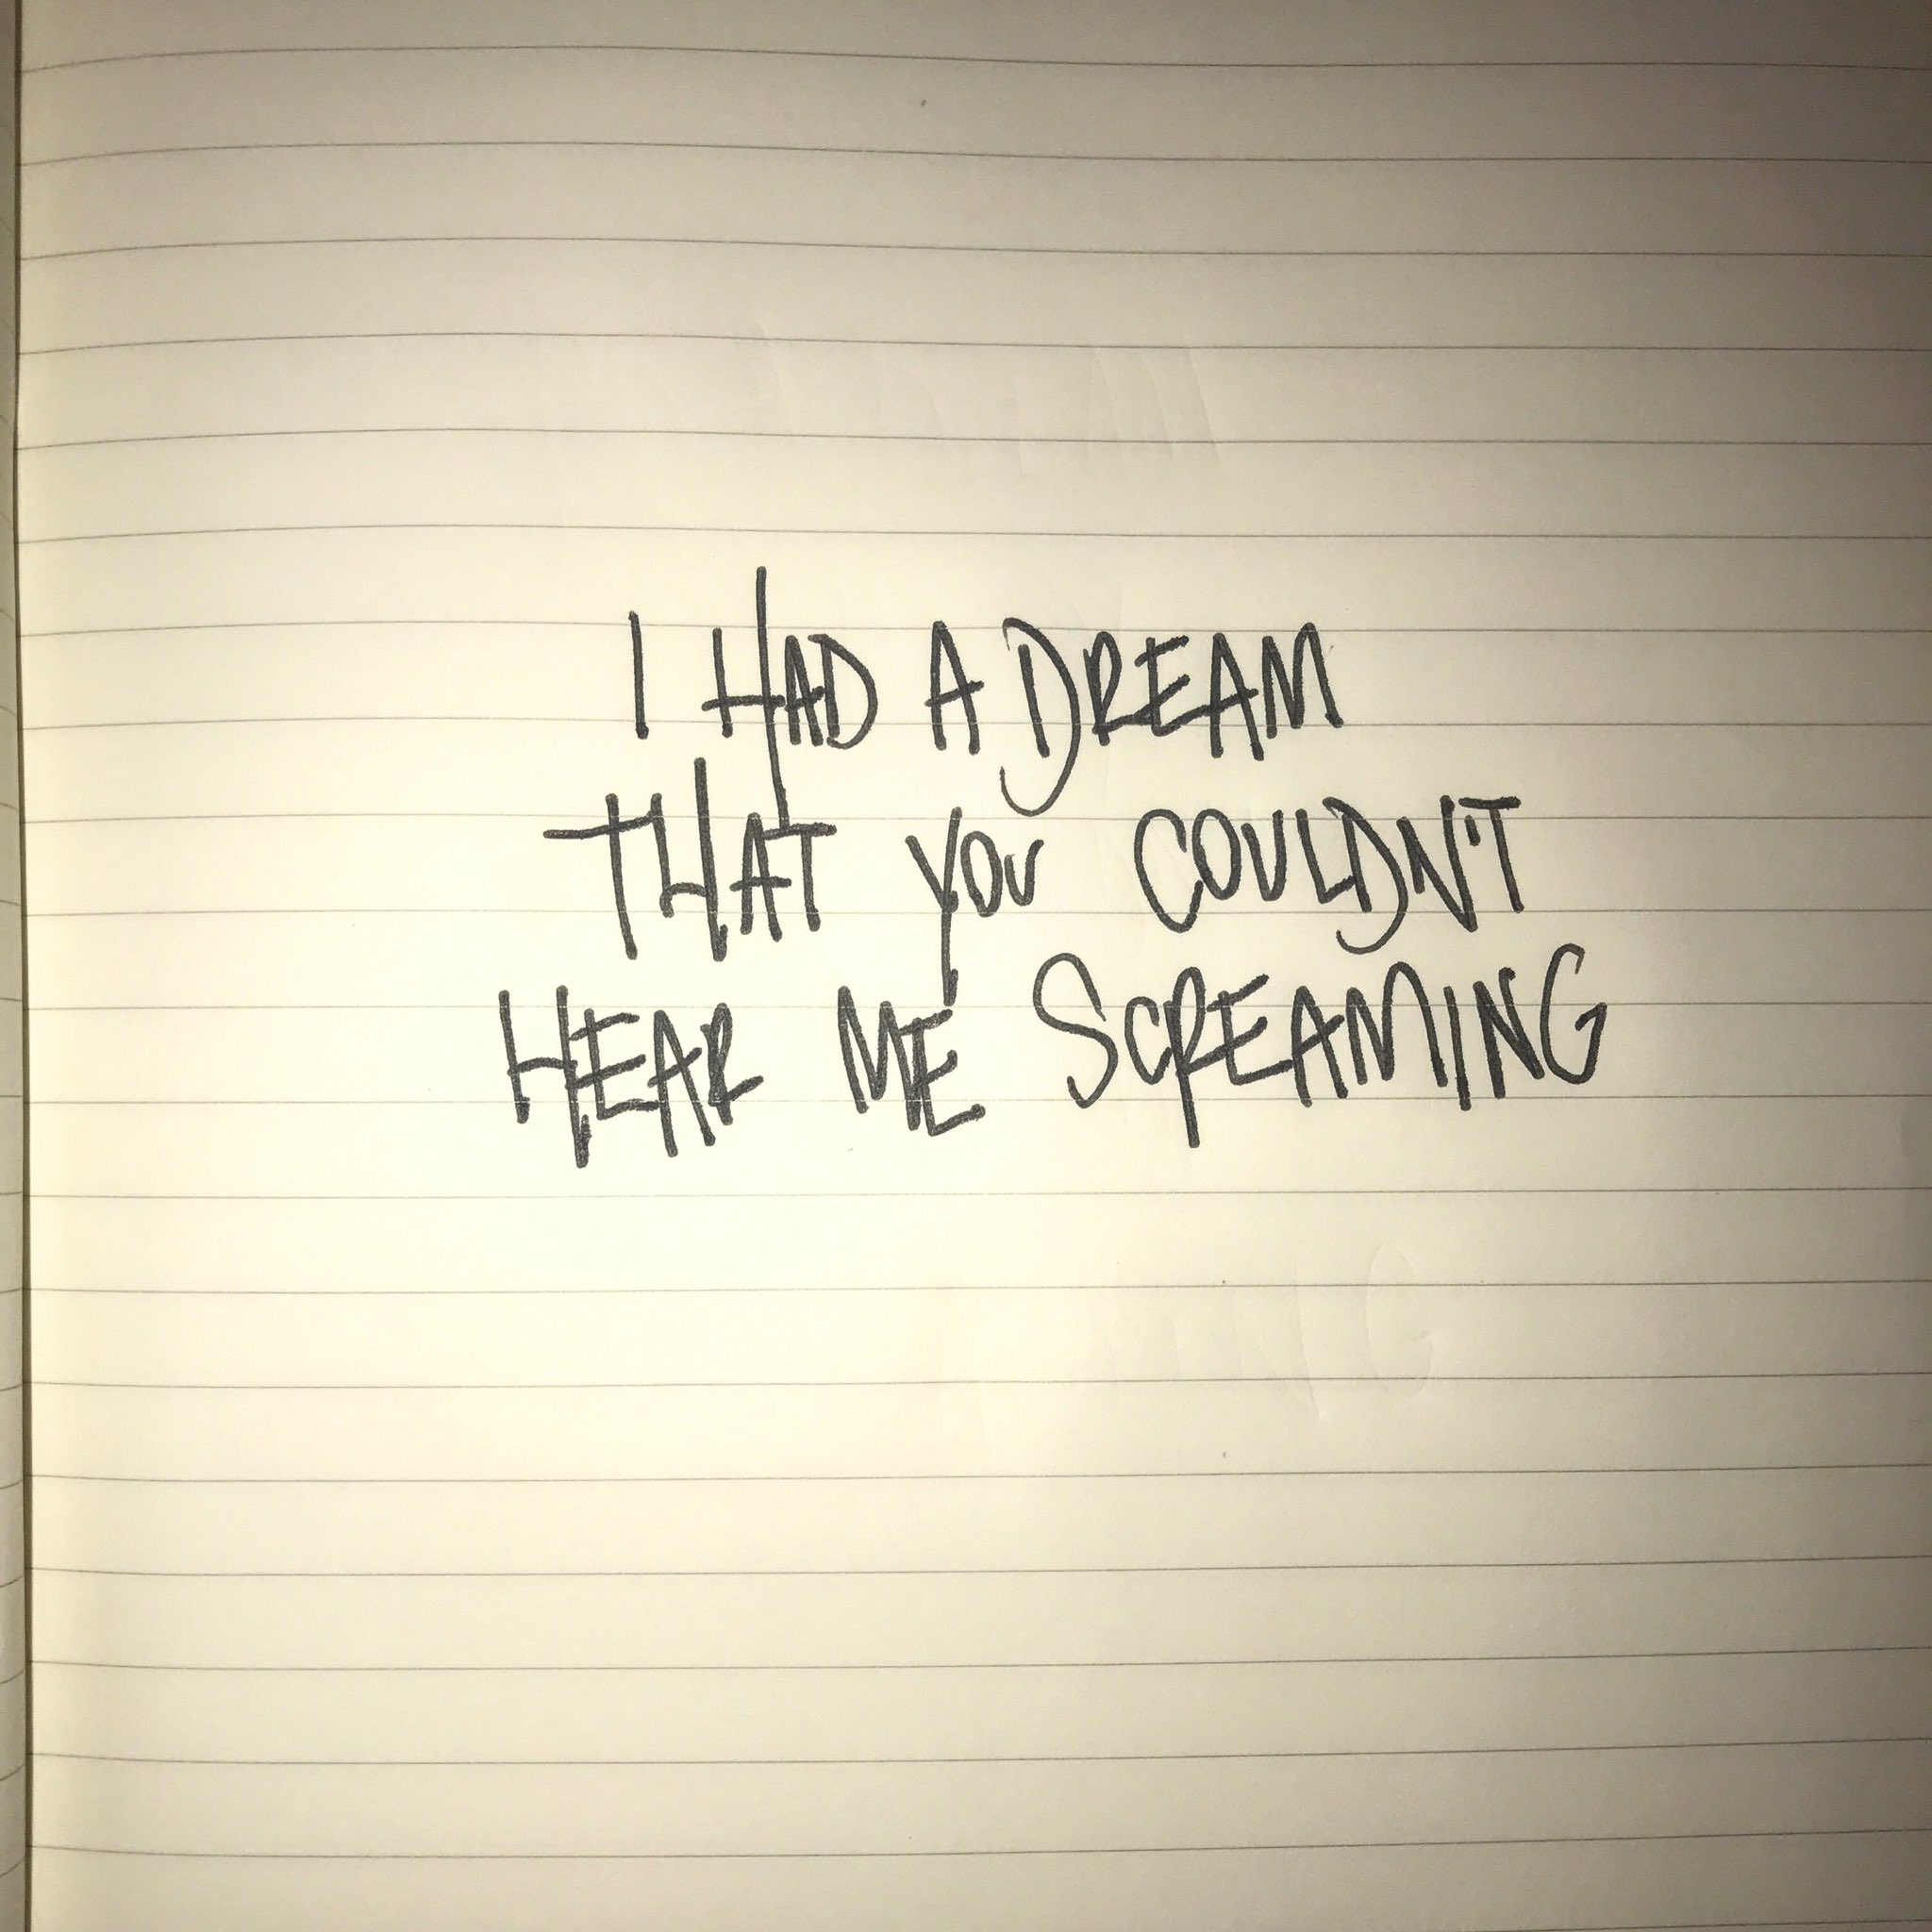 I HAD A DREAM
THAT YOU COULDN'T
HEAR ME SCREAMING